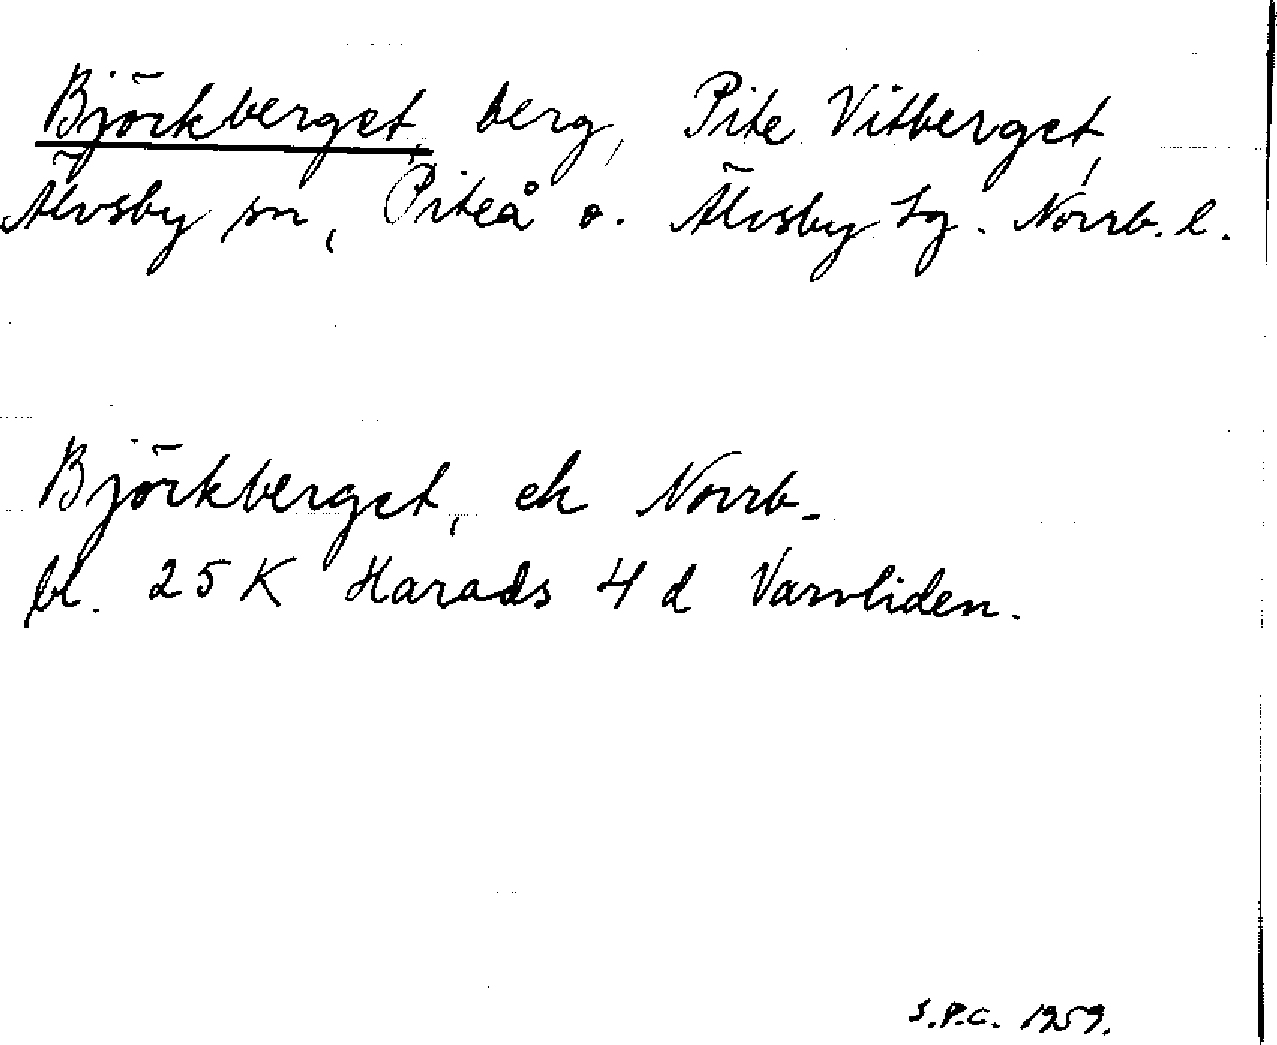 Björkberget, berg, Pite Vitberget,
Älvsby sn, Piteå o. Älvsby tg. Norrb. l.
Björkberget, ek Norrb.
bl. 25 K Harads 4 d Varvliden.
S.P.C. 1959.